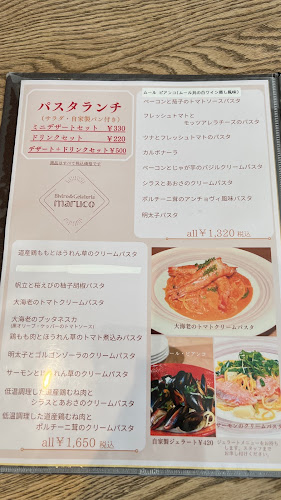 パスタランチ
(サラダ・自家製パン付き)
ミニデザートセット ¥330
ドリンクセット ¥220
デザート+ドリンクセット ¥500
maruco
ムール ビアンコ(ムール貝の白ワイン蒸し風味)
ベーコンと茄子のトマトソースパスタ
フレッシュトマトと
モッツアレラチーズのパスタ
ツナとフレッシュトマトのパスタ
カルボナーラ
ベーコンとじゃが芋のバジルクリームパスタ
シラスとあおさのクリームパスタ
ポルチーニ茸のアンチョヴィ風味パスタ
明太子パスタ
all¥1,320 税込
道産鶏ももとほうれん草のクリームパスタ
帆立と桜えびの柚子胡椒パスタ
大海老のトマトクリームパスタ
大海老のプッタネスカ
(黒オリーブ・ケッパーのトマトソース)
鶏もも肉とほうれん草のトマト煮込みパスタ
明太子とゴルゴンゾーラのクリームパスタ
サーモンとほうれん草のクリームパスタ
低温調理した道産鶏むね肉と
シラスとあおさのクリームパスタ
低温調理した道産鶏むね肉と
ポルチーニ茸のクリームパスタ
all¥1,650 税込
大海老のトマトクリームパスタ
自家製ジェラート¥420
サーモンのクリームパスタ